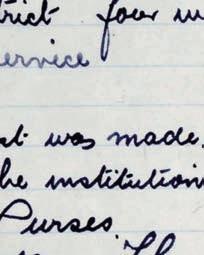 trict four
ervice
st was made.
he institution
Purses.